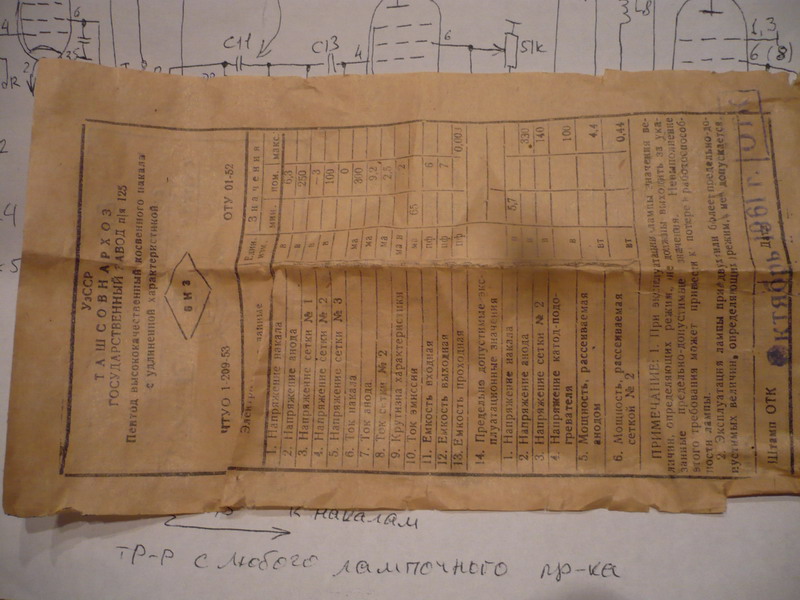 С11
С13
4
6
51к
L8
1,3
6 (8)
УзССР
ТАШСОВНАРХОЗ
ГОСУДАРСТВЕННЫЙ ЗАВОД п/я 125
Пентод высококачественный косвенного накала
с удлиненной характеристикой
ЧТУО 1-299-53 ОТУ 01-52
Един. изм. Значения
мин. ном. макс.
1. Напряжение накала в 6,3
2. Напряжение анода в 250
3. Напряжение сетки № 1 в —3
4. Напряжение сетки № 2 в 100
5. Напряжение сетки № 3 0
6. Ток накала ма 300
7. Ток анода ма 9,2
8. Ток сетки № 2 ма 2,5
9. Крутизна характеристики 2
10. Ток эмиссии ма 65
11. Емкость входная пф 6
12. Емкость выходная пф 7
13. Емкость проходная пф 0,003
14. Предельно допустимые экс-
плуатационные значения
1. Напряжение накала в 5,7
2. Напряжение анода в 330
3. Напряжение сетки № 2 в 140
4. Напряжение катод-подо-
гревателя в 100
5. Мощность, рассеиваемая
анодом вт 4,4
6. Мощность, рассеиваемая
сеткой № 2 вт 0,44
ПРИМЕЧАНИЕ: 1. При эксплуатации лампы значения ве-
личин, определяющих режим, не должны выходить за ука-
занные предельно-допустимые значения. Невыполнение
этого требования может привести к потере работоспособ-
ности лампы.
2. Эксплуатация лампы при двух или более предельно-до-
пустимых величин, определяющих режим, не допускается.
Штамп ОТК Октябрь 1961 г. ОТК
к накалам
ТР-Р с любого лампочного пр-ка